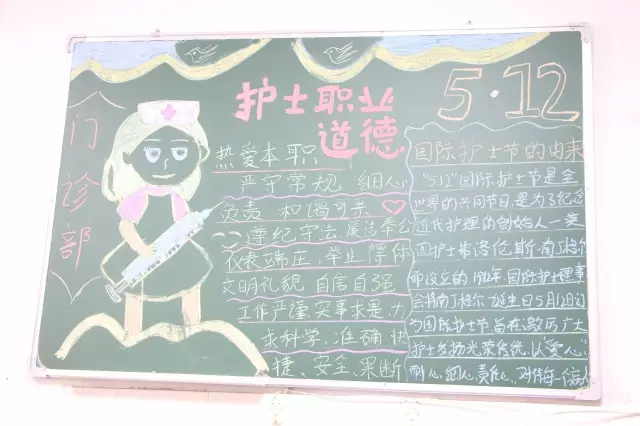 门诊部
护士职业
道德
5·12
热爱本职
严守常规 细心
负责 和谒可亲
遵纪守法,廉洁奉公
仪表端庄,举止得体
文明礼貌 自信自强
工作严谨,实事求是,力
求科学、准确 快
捷、安全、果断
国际护士节的由来
"5.12"国际护士节是全
世界的共同节日,是为了纪念
近代护理的创始人—英
国护士弗洛伦斯·南丁格尔
而设立的,1912年国际护士理事
会将南丁格尔诞生日5月12日订
为国际护士节旨在激厉广大
护士发扬光荣传统,以"爱心、
耐心、细心、责任心,对待每一个病人